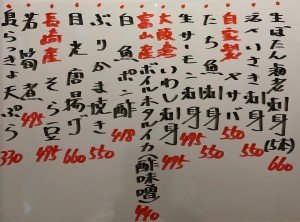 生ぼたん海老刺身(5本) 660
活〆いさき刺身 550
自家製〆サバ 550
たち魚刺身 550
生サーモン刺身 495
大阪産いわし刺身 495
富山産ボイルホタルイカ(酢味噌) 440
白魚ポン酢 418
ぶりかま焼き 550
目光唐揚げ 660
長崎産そら豆 495
若筍煮 495
島らっきょ天ぷら 330